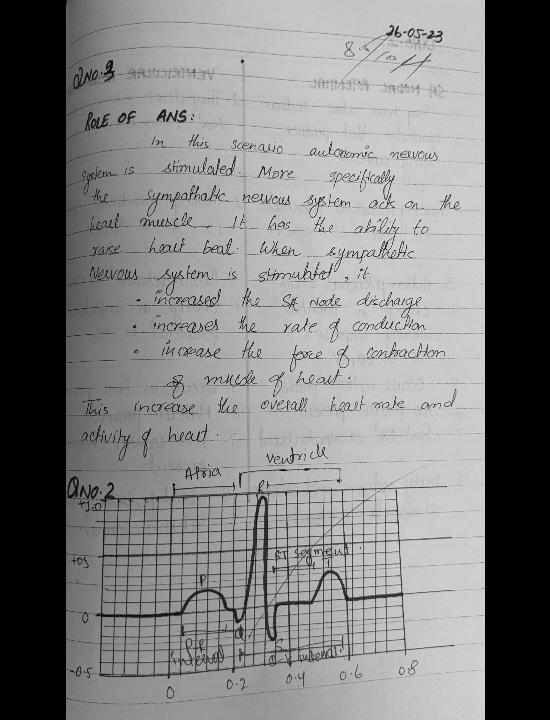 26-05-23
8.5/10
QNO.3
ROLE OF ANS:
In this scenario autonomic nervous
system is stimulated. More specifically
the sympathatic nervous system ack on the
heart muscle. It has the ability to
raise heart beat. When sympathetic
Nervous system is stimulated, it
• increased the SA Node discharge
• increases the rate of conduction
• increase the force of contraction
of muscle of heart.
This increase the overall heart rate and
activity of heart.
Atria
Ventricle
QNO.2
R
+1.0
+05
ST segment
P
T
0
Q
S
P-R
interval
interval
-0.5
0
0.2
0.4
0.6
0.8